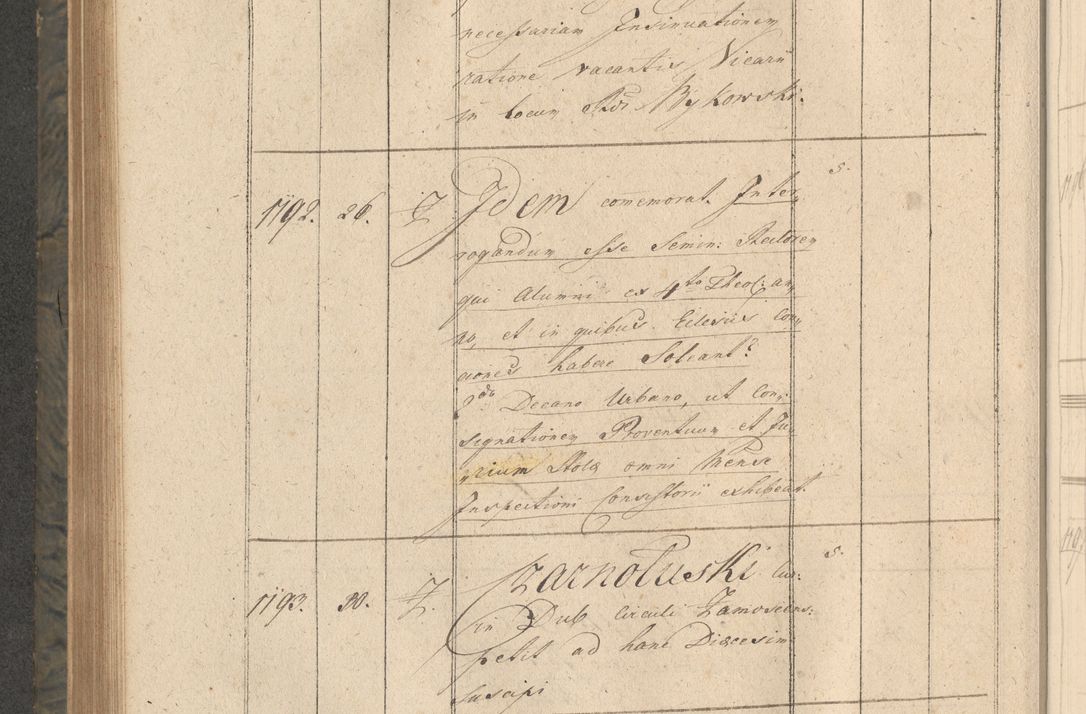 necessariam Insinuationem
ratione vacantis Vicarii
in locum Rdi Bykowski.
5.
1192. 26. Z. Idem comemorat. Inter,,
rogandum esse Semin: Rectorem
qui Alumni ex 4to Theol: an,,
no, et in quibus Ecclesiis Con,,
ciones habere Soleant?
2do Decano Urbano, ut Con,,
segnationem Proventuum et Ju,,
,,rium Stolæ omni Mense
Inspectioni Consistorii exhibeat.
5.
1193. 30. Z. Czarnoluski Cur:
in Dub Circuli Zamoscens:
petit ad hanc Diæcesim
suscipi